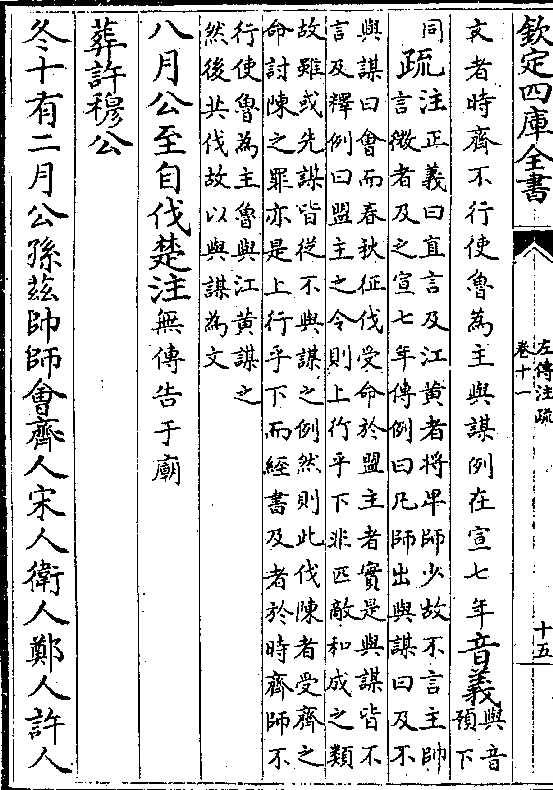 欽定四庫全書
左傳注疏
卷十一
十五
亥者時齊不行使魯為主與謀例在宣七年音義與音
預下
同疏注正義曰直言及江黄者將卑師少故不言主帥
言微者及之宣七年傳例曰凡師出與謀曰及不
與謀曰會而春秋征伐受命於盟主者實是與謀皆不
言及釋例曰盟主之令則上行乎下非匹敵和成之類
故雖或先謀皆從不與謀之例然則此伐陳者受齊之
命討陳之罪亦是上行乎下而經書及者於時齊師不
行使魯為主魯與江黄謀之
然後共伐故以與謀為文
八月公至自伐楚注無傳告于廟
葬許穆公
冬十有二月公孫茲帥師會齊人宋人衛人鄭人許人